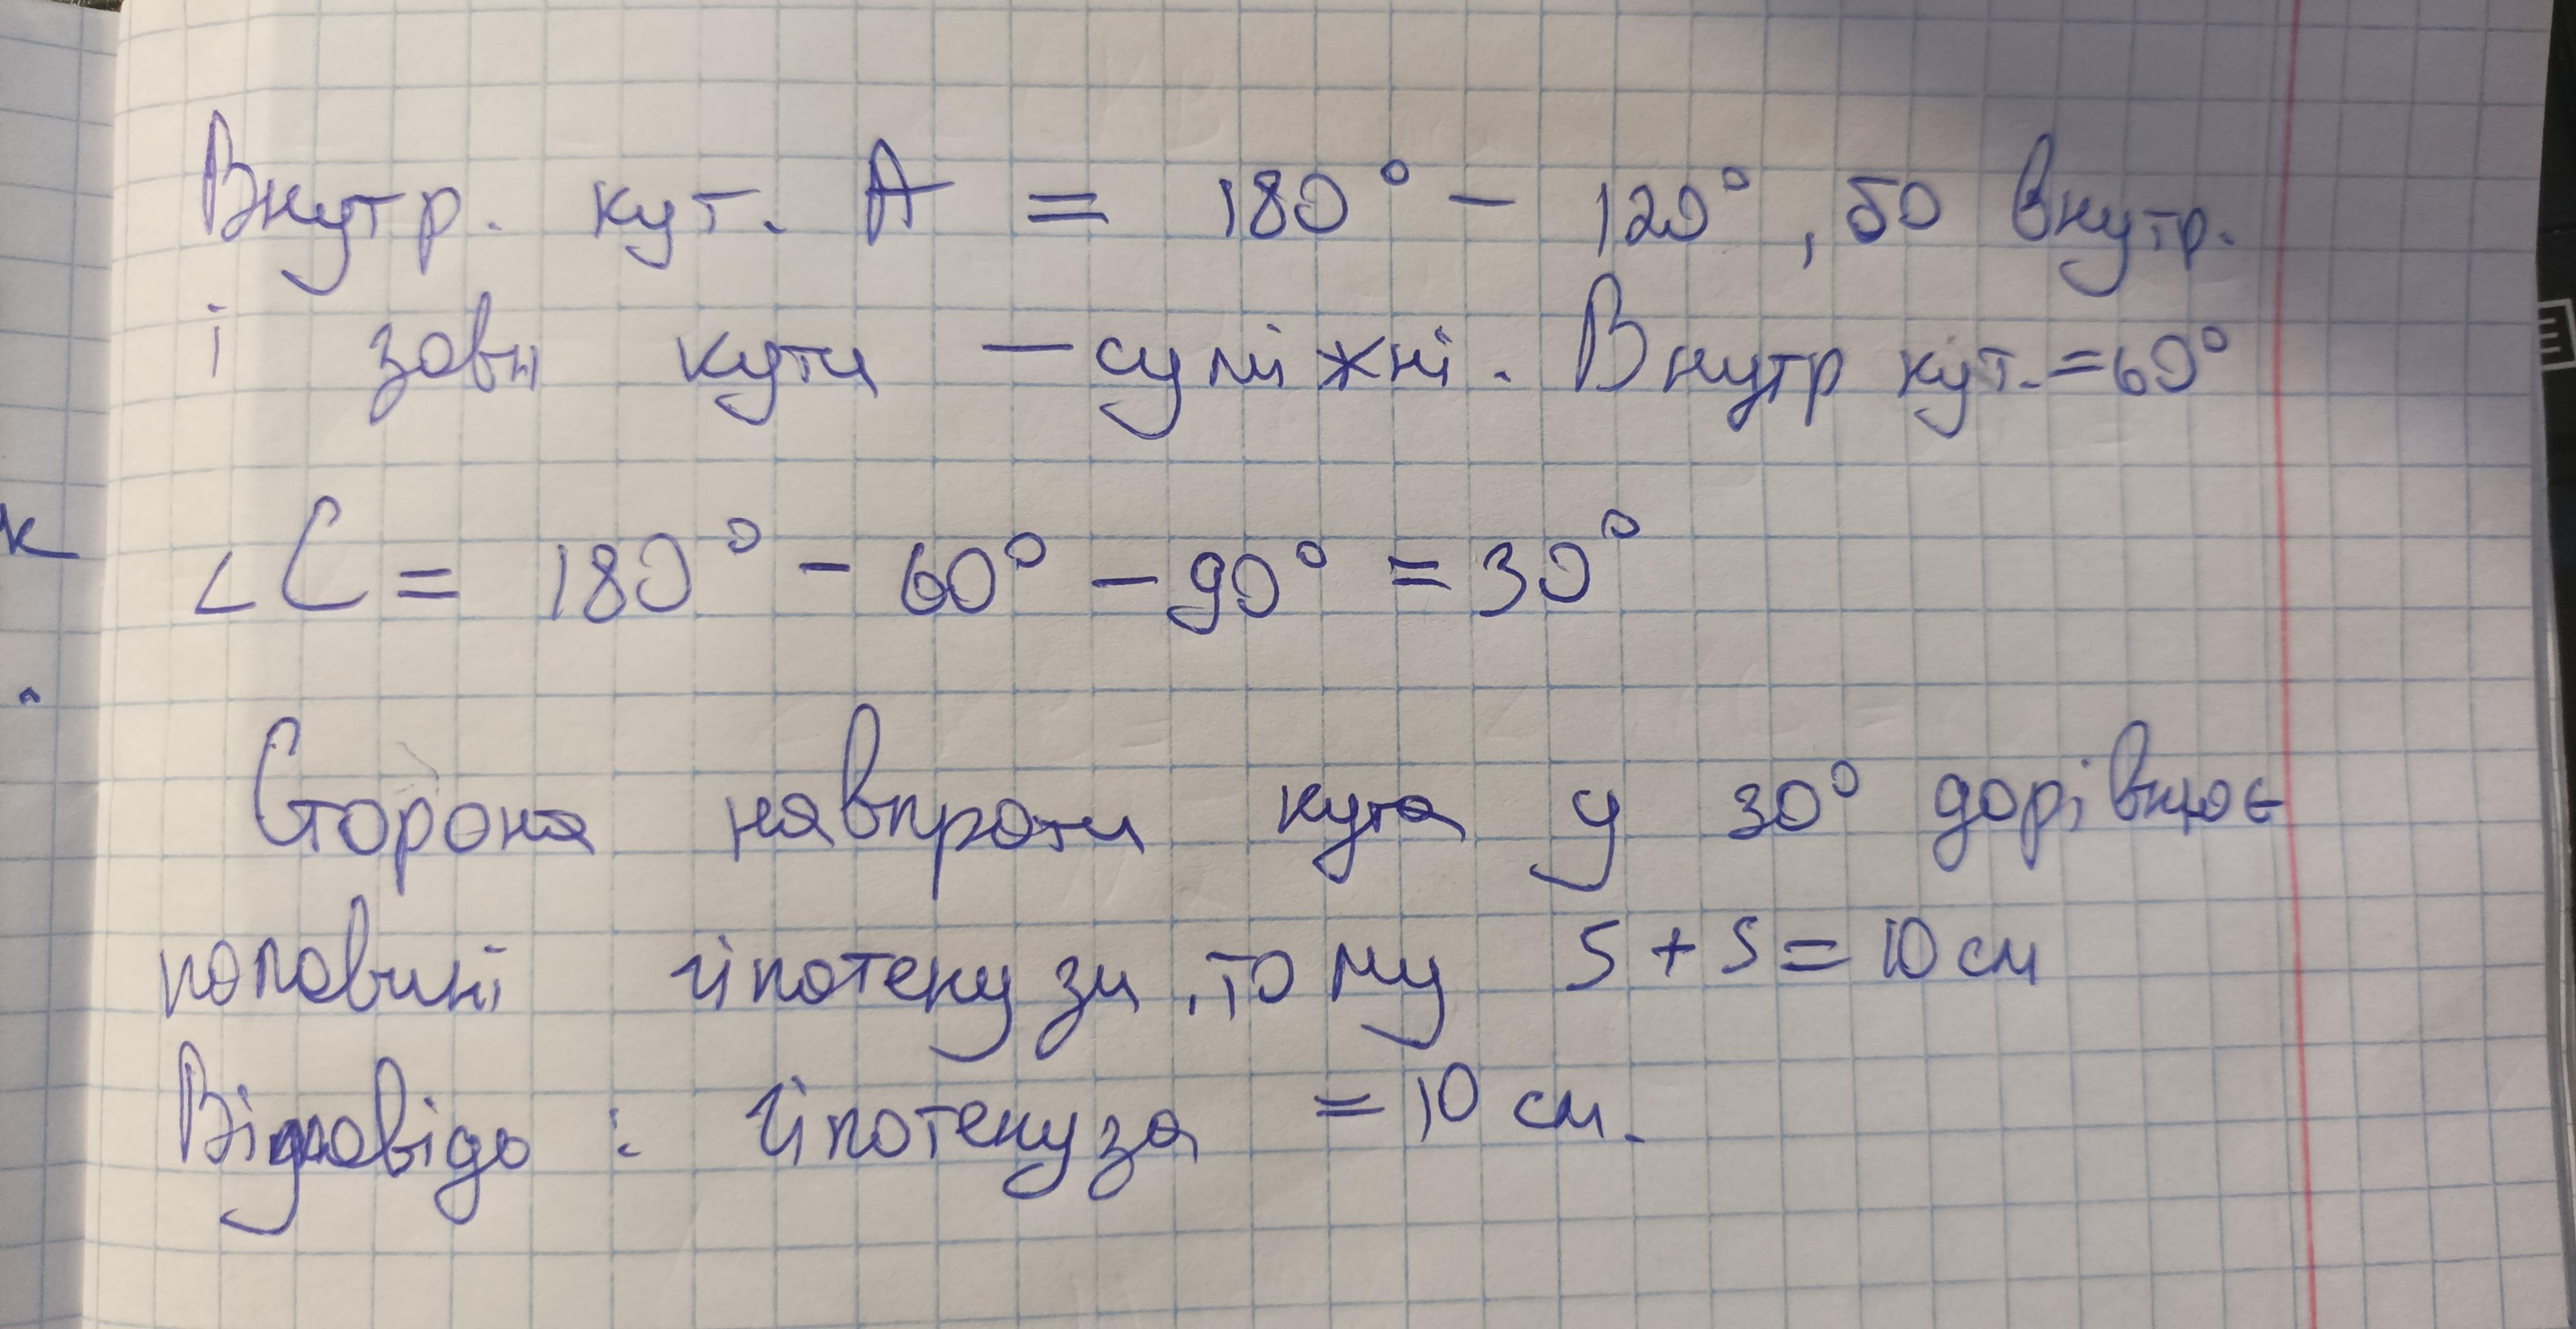 Внутр. кут. А = 180° - 120°, бо внутр.
і зовн кути - суміжні. Внутр кут. = 60°
к
∠С = 180° - 60° - 90° = 30°
Сторона навпроти кута у 30° дорівнює
половині гіпотенузи, тому 5 + 5 = 10 см
Відповідь : гіпотенуза = 10 см.